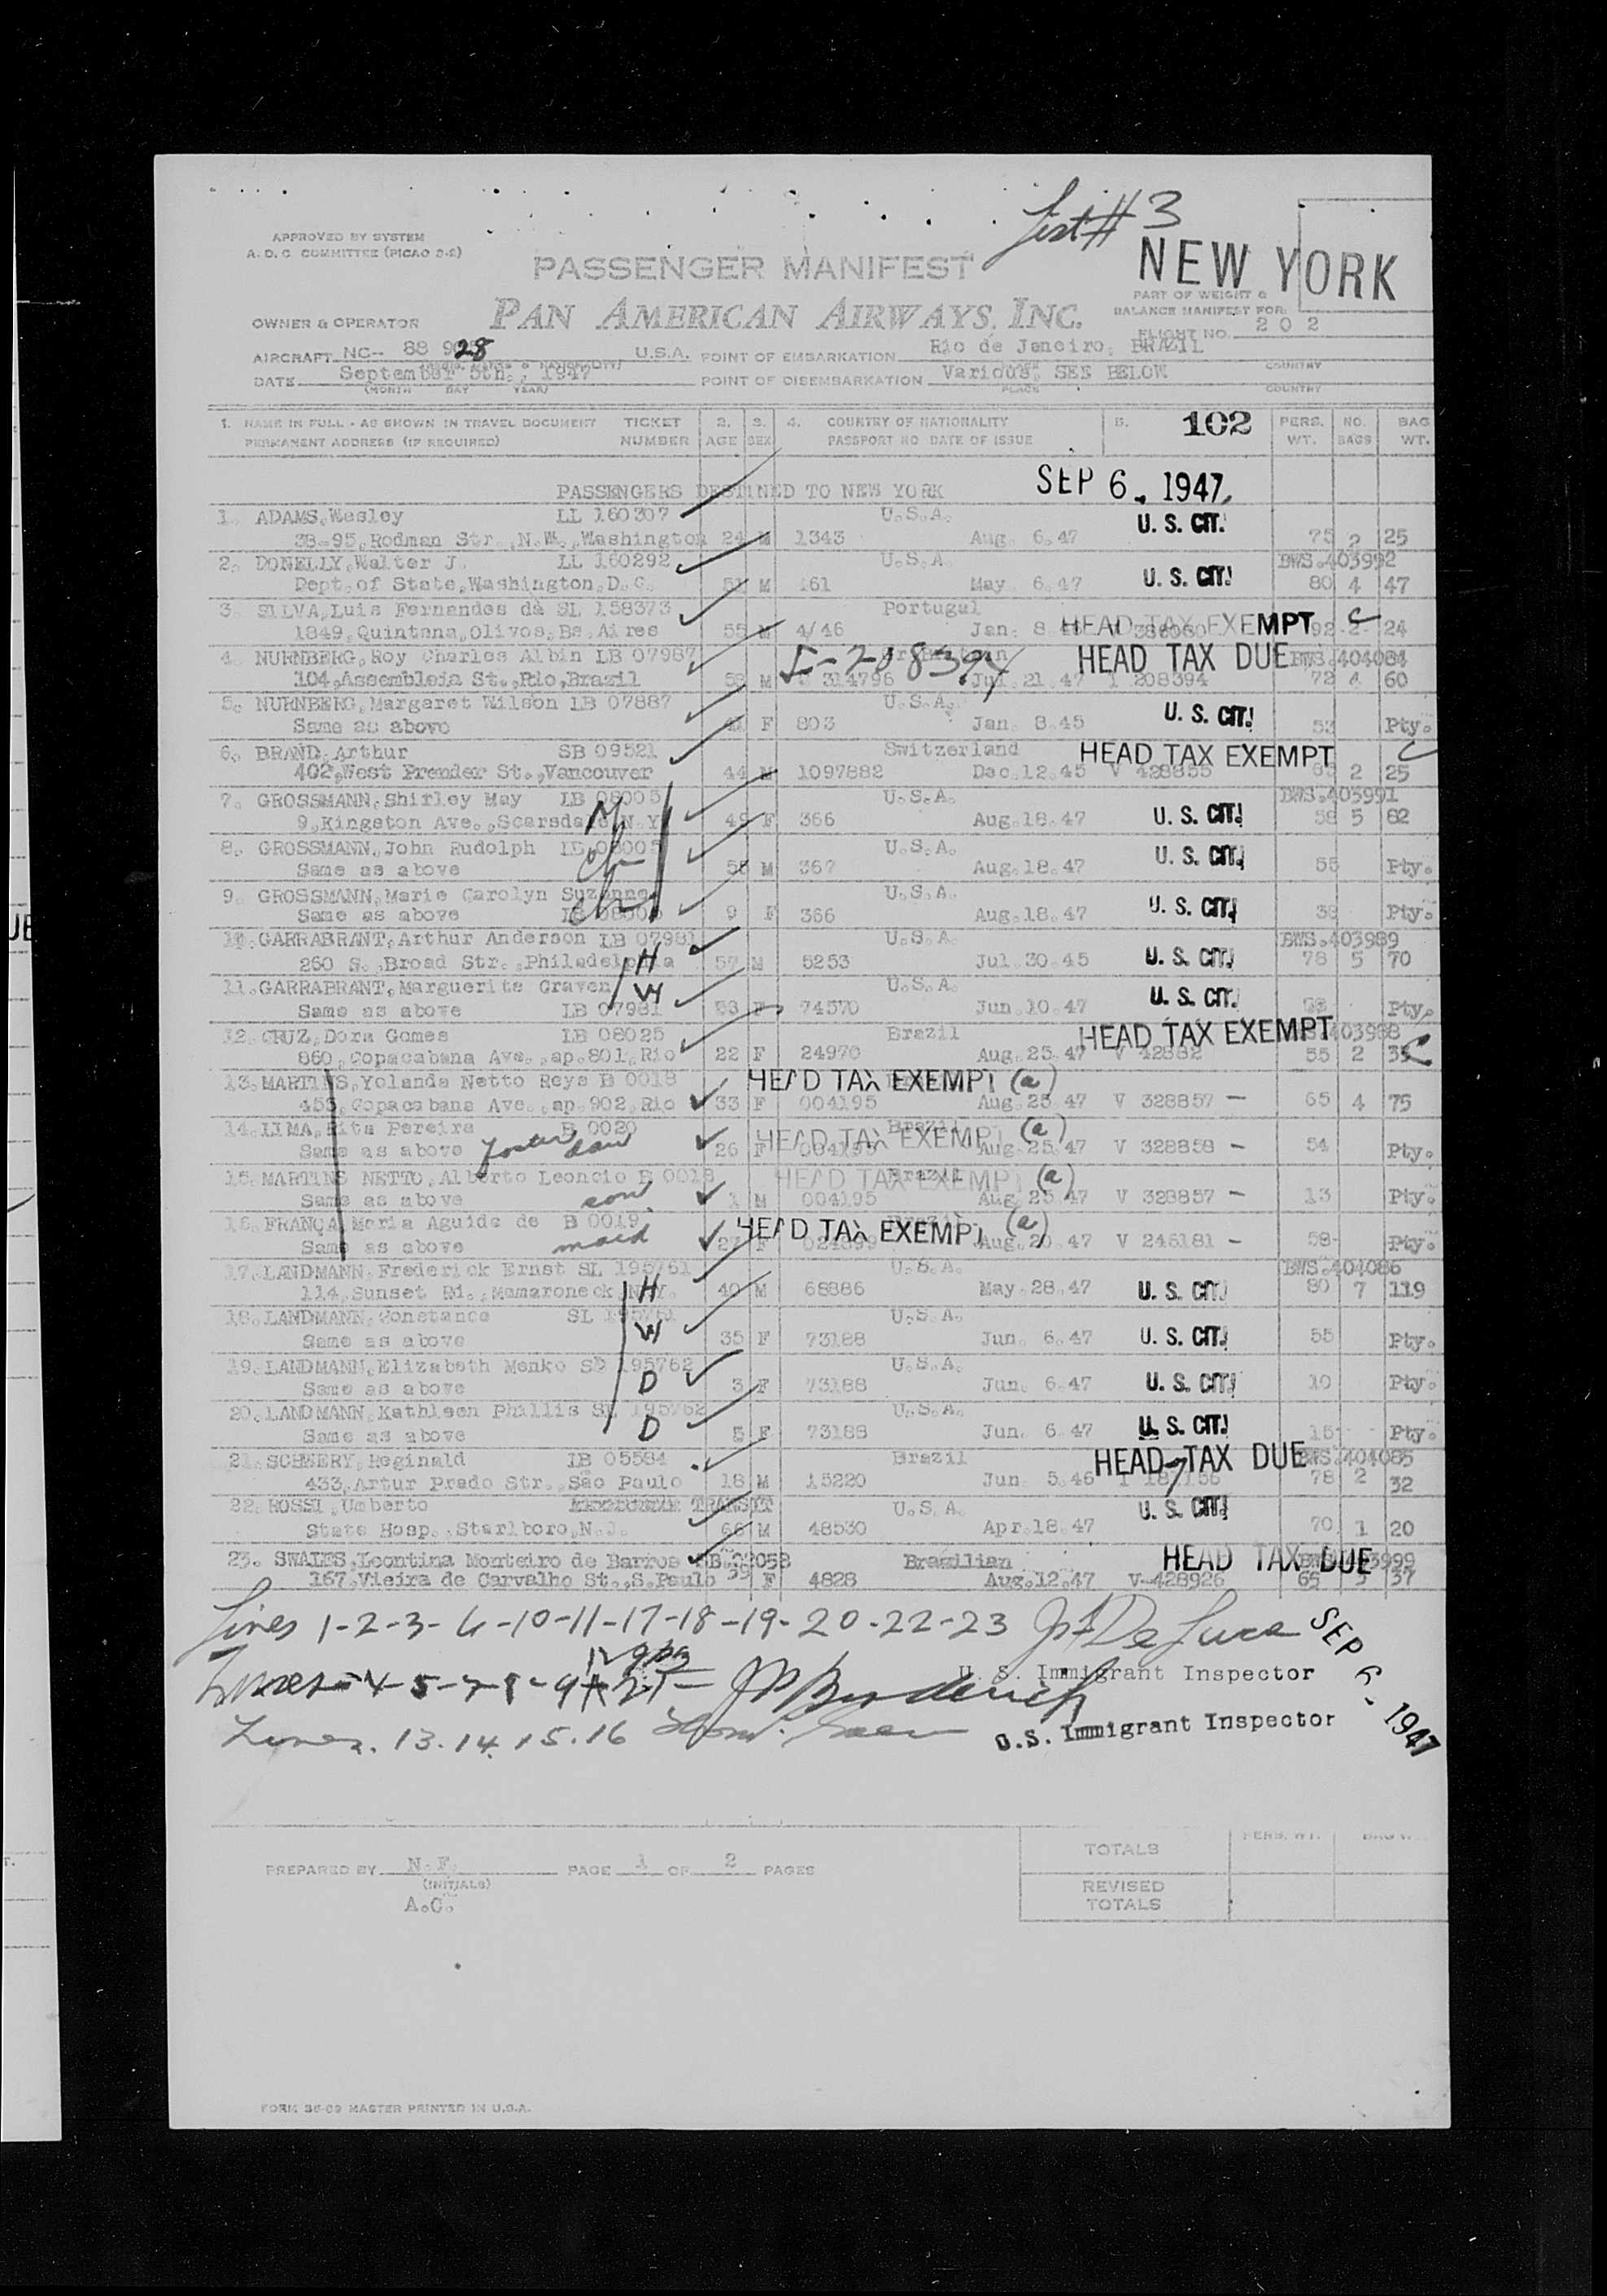 List # 3
APPROVED BY SYSTEM
A. D. C COMMITTEE (PICAO 2-2)
PASSENGER MANIFEST
NEW YORK
PAN AMERICAN AIRWAYS, INC.
PART OF WEIGHT &
BALANCE MANIFEST FOR:
OWNER & OPERATOR
FLIGHT NO. 202
AIRCRAFT NC-- 88 9 28 U.S.A. POINT OF EMBARKATION Rio de Janeiro, BRAZIL
DATE September 5th., 1947 POINT OF DISEMBARKATION Various, SEE BELOW
COUNTRY
(MONTH DAY YEAR) PLACE COUNTRY
1. NAME IN FULL - AS SHOWN IN TRAVEL DOCUMENT TICKET 2. 3. 4. COUNTRY OF NATIONALITY 5. 102 PERS. NO. BAG
PERMANENT ADDRESS (IF REQUIRED) NUMBER AGE SEX PASSPORT NO DATE OF ISSUE WT. BAGS WT.
PASSENGERS DESTINED TO NEW YORK SEP 6 - 1947
1. ADAMS, Wesley LL 160307 U.S.A. U. S. CIT.
38-95, Rodman Str., N.W., Washington 24 M 1343 Aug. 6.47 75 2 25
2. DONELLY, Walter J. LL 160292 U.S.A. BWS.403992
Dept. of State, Washington, D.C. 51 M 161 May. 6.47 U. S. CIT. 80 4 47
3. SILVA, Luis Fernandes da SL 158373 Portugal
1849, Quintana, Olivos, Bs. Aires 55 M 4/46 Jan. 8 HEAD TAX EXEMPT 92 2 24
4. NURNBERG, Roy Charles Albin LB 07987 I-208394 HEAD TAX DUE BWS.404084
104, Assembleia St., Rio, Brazil M 314796 21.47 I 208394 72 4 60
5. NURNBERG, Margaret Wilson LB 07887 U.S.A. U. S. CIT.
Same as above F 803 Jan. 8.45 53 Pty.
6. BRAND, Arthur SB 09521 Switzerland HEAD TAX EXEMPT C
402, West Prender St., Vancouver 44 M 1097882 Dec.12.45 V 428855 2 25
7. GROSSMANN, Shirley May LB 08005 U.S.A. BWS.403991
9, Kingston Ave., Scarsdale N.Y. F 366 Aug.18.47 U. S. CIT. 58 5 82
8. GROSSMANN, John Rudolph LB 08005 U.S.A. U. S. CIT.
Same as above M 367 Aug.18.47 55 Pty.
9. GROSSMANN, Marie Carolyn Suzanne U.S.A. U. S. CIT.
Same as above LB 08005 9 F 366 Aug.18.47 38 Pty.
10. GARRABRANT, Arthur Anderson LB 07981 U.S.A. BWS.403989
260 S., Broad Str., Philadelphia H 57 M 5253 Jul.30.45 U. S. CIT. 78 5 70
11. GARRABRANT, Marguerite Craven W U.S.A. U. S. CIT.
Same as above LB 07981 53 F 74570 Jun.10.47 Pty.
12. CRUZ, Dora Gomes LB 08025 Brazil HEAD TAX EXEMPT
860, Copacabana Ave., ap.801, Rio 22 F 24970 Aug.25.47 V 42882 55 2
13. MARTINS, Yolanda Netto Reys B 0018 HEAD TAX EXEMPT (a)
453, Copacabana Ave., ap.902, Rio 33 F 004195 Aug.25.47 V 328857 - 65 4 75
14. LIMA, Rita Pereira B 0020 HEAD TAX EXEMPT (a)
Same as above foster dau 26 F 004195 Aug.25.47 V 328858 - 54 Pty.
15. MARTINS NETTO, Alberto Leoncio B 0018 HEAD TAX EXEMPT Brazil (a)
Same as above son 1 M 004195 Aug 25 47 V 328857 - 13 Pty.
16. FRANÇA, Maria Aguida de B 0019 HEAD TAX EXEMPT (a)
Same as above maid 27 F Aug.20.47 V 246181 - 58 Pty.
17. LANDMANN, Frederick Ernst SL 195761 U.S.A. BWS.404086
114, Sunset Rd., Mamaroneck N.Y. H 40 M 68886 May.28.47 U. S. CIT. 80 7 119
18. LANDMANN, Constance SL 195761 U.S.A.
Same as above W 35 F 73188 Jun. 6.47 U. S. CIT. 55 Pty.
19. LANDMANN, Elizabeth Menko SL 195762 U.S.A.
Same as above D 3 F 73188 Jun. 6.47 U. S. CIT. 10 Pty.
20. LANDMANN, Kathleen Phillis SL 195762 U.S.A. U. S. CIT.
Same as above D 5 F 73188 Jun. 6 47 15 Pty.
21. SCHNERY, Reginald LB 05584 Brazil HEAD TAX DUE BWS.404085
433, Artur Prado Str., São Paulo 18 M 15220 Jun. 5.46 78 2 32
22. ROSSI, Umberto TRANSIT U.S.A. U. S. CIT.
State Hosp., Starlboro, N.J. 66 M 48530 Apr.18.47 70 1 20
23. SWALES, Leontina Monteiro de Barros Brazilian HEAD TAX DUE
167, Vieira de Carvalho St., S.Paulo 39 F 4828 Aug.12.47 V-428926 65 3 37
Lines 1-2-3-6-10-11-17-18-19-20-22-23 De Luca SEP 6 - 1947
U. S. Immigrant Inspector
Lines 4-5-7-8-9 21
Lines. 13.14.15.16 U.S. Immigrant Inspector
TOTALS PERS. WT. BAG WT.
PREPARED BY N.F. PAGE 1 OF 2 PAGES
(INITIALS)
A.C.
REVISED
TOTALS
FORM 36-09 MASTER PRINTED IN U.S.A.